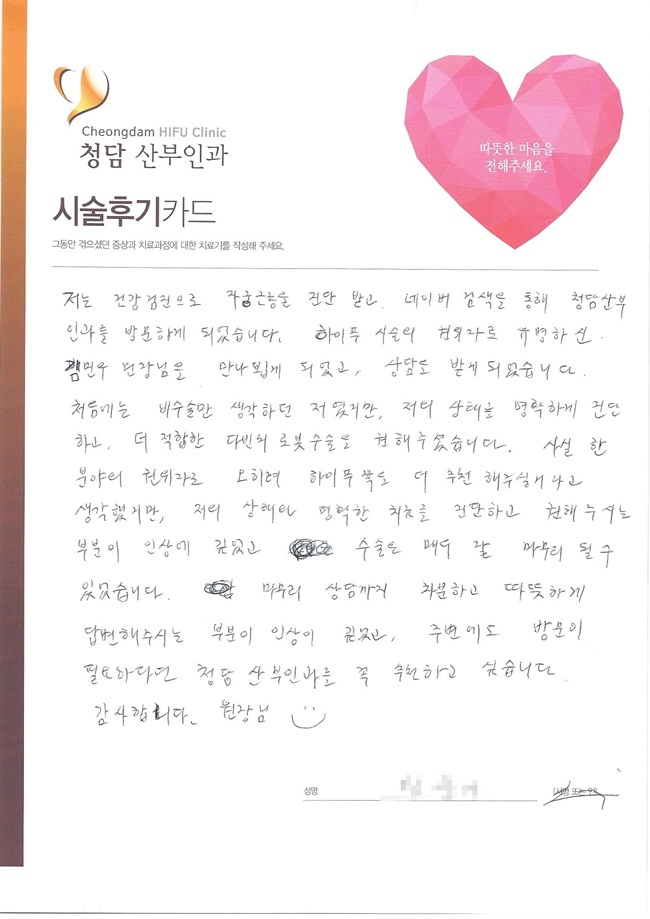 Cheongdam HIFU Clinic
청담 산부인과
따뜻한 마음을
전해주세요.
시술후기카드
그동안 겪으셨던 증상과 치료과정에 대한 치료기를 작성해 주세요.
저는 건강검진으로 자궁근종을 진단 받고, 네이버 검색을 통해 청담산부
인과를 방문하게 되었습니다. 하이푸 시술의 권위자로 유명하신
김민우 원장님을 만나뵙게 되었고, 상담도 받게되었습니다.
처음에는 비수술만 생각하던 저였지만, 저의 상태를 명확하게 진단
하고, 더 적합한 다빈치 로봇수술을 권해주셨습니다. 사실 한
분야의 권위자로 오히려 하이푸 쪽으로 더 추천 해주실거라고
생각했지만, 저의 상태와 명확한 치료를 진단하고 권해주시는
부분이 인상에 깊었고 수술은 매우 잘 마무리 될 수
있었습니다. 마무리 상담까지 차분하고 따뜻하게
답변해주시는 부분이 인상이 깊었고, 주변에도 방문이
필요하다면 청담 산부인과를 꼭 추천하고 싶습니다.
감사합니다. 원장님
성명